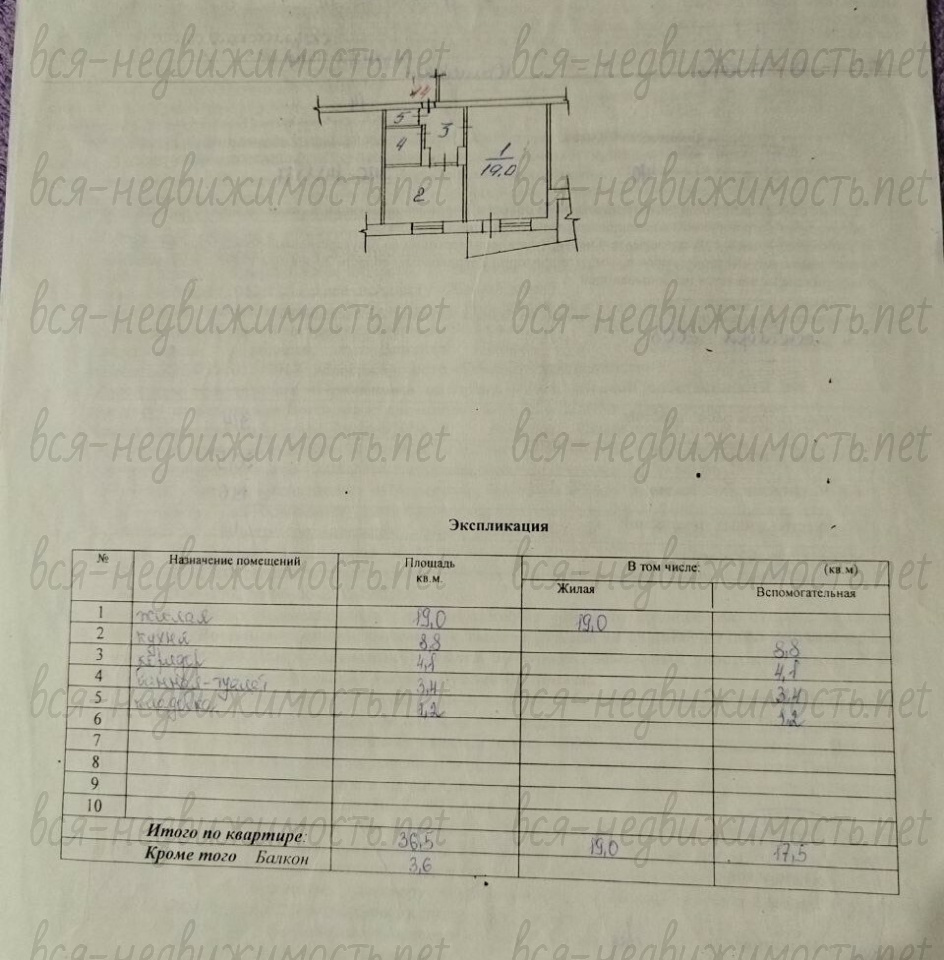 вся-недвижимость.net вся-недвижимость.net
44
5
3
4
1
19,0
вся-недвижимость.net вся-недвижимость.net
2
вся-недвижимость.net вся-недвижимость.net
вся-недвижимость.net вся-недвижимость.net
Экспликация
№ Назначение помещений Площадь кв.м. В том числе: (кв.м)
Жилая Вспомогательная
вся-недвижимость.net вся-недвижимость.net
1 жилая 19,0 19,0
2 кухня 8,8 8,8
3 коридор 4,1 4,1
4 ванная-туалет 3,4 3,4
5 кладовка 1,2 1,2
6
вся-недвижимость.net вся-недвижимость.net
7
8
9
10
Итого по квартире: 36,5 19,0 17,5
вся-недвижимость.net вся-недвижимость.net
Кроме того Балкон 3,6
вся-недвижимость.net вся-недвижимость.net